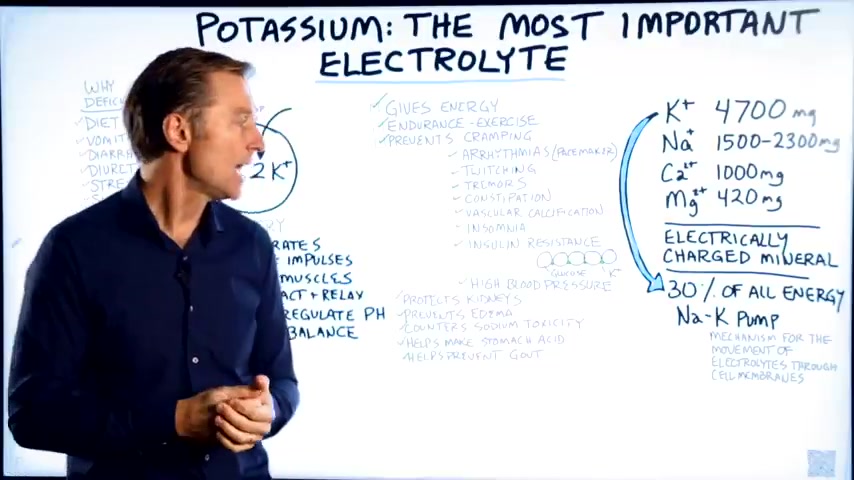 POTASSIUM: THE MOST IMPORTANT
ELECTROLYTE
WHY
DEFIC
✓DIET
✓VOMIT
✓DIARRH
✓DIURET
✓STRE
2K+
RATES
IMPULSES
MUSCLES
ACT + RELAX
REGULATE PH
BALANCE
✓GIVES ENERGY
✓ENDURANCE-EXERCISE
✓PREVENTS CRAMPING
✓ARRHYTHMIAS (PACEMAKER)
✓TWITCHING
✓TREMORS
✓CONSTIPATION
✓VASCULAR CALCIFICATION
✓INSOMNIA
✓INSULIN RESISTANCE
GLUCOSE K+
✓HIGH BLOOD PRESSURE
✓PROTECTS KIDNEYS
✓PREVENTS EDEMA
✓COUNTERS SODIUM TOXICITY
✓HELPS MAKE STOMACH ACID
✓HELPS PREVENT GOUT
K+ 4700 mg
Na+ 1500-2300mg
Ca2+ 1000mg
Mg2+ 420mg
ELECTRICALLY
CHARGED MINERAL
30% OF ALL ENERGY
Na-K PUMP
MECHANISM FOR THE
MOVEMENT OF
ELECTROLYTES THROUGH
CELL MEMBRANES